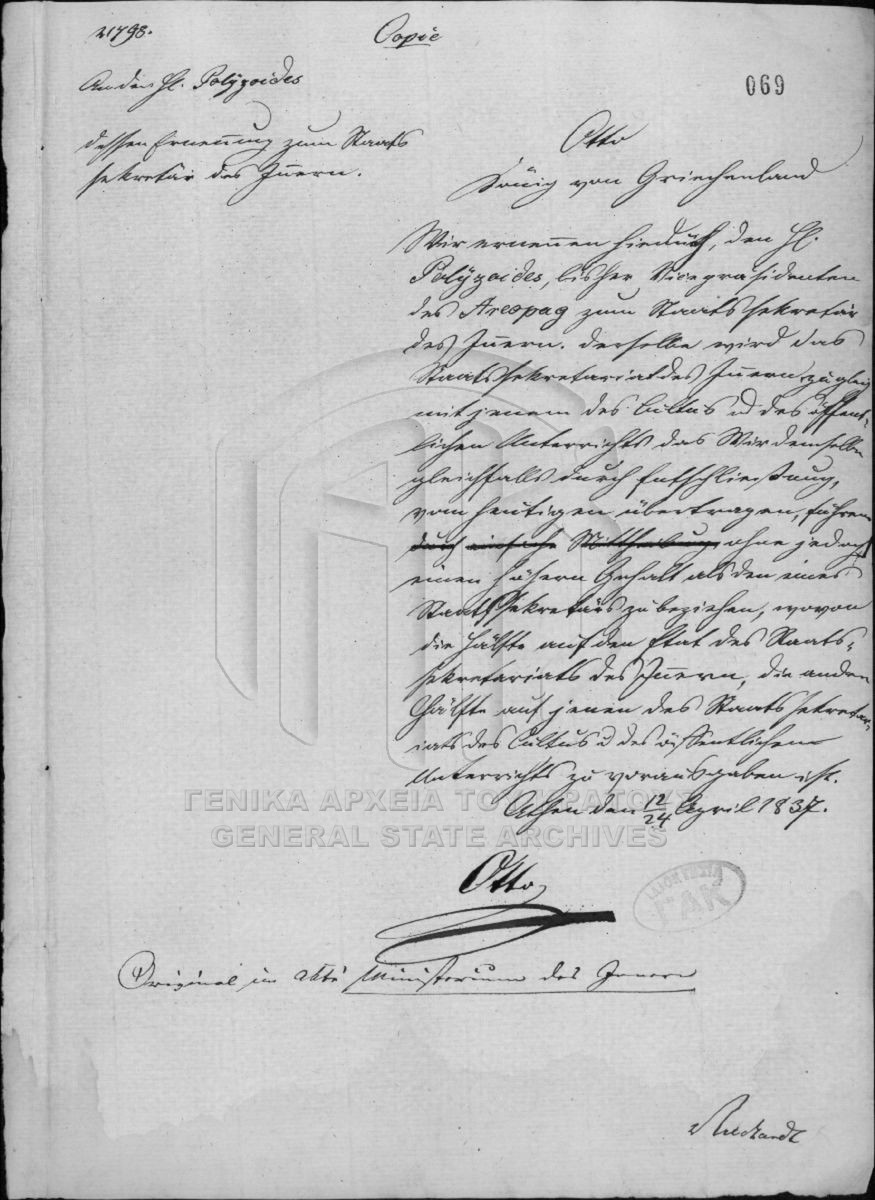 21798.
Copie
069
An den H. Polÿzoides
dessen Ernennung zum Staats
sekretär des Innern.
Otto
König von Griechenland
Wir ernennen hiedurch, den H.
Polÿzoides, bisher Vicepräsidenten
des Areopag zum Staatssekretär
des Innern. derselbe wird das
Staatssekretariat des Innern zugleich
mit jenem des Cultus u des öffent-
lichen Unterrichts das Wir demselben
gleichfalls durch Entschließung,
vom heutigen übertragen, führen
durch einfache Mittheilung ohne jedoch
einen höhern Gehalt als den eines
Staatssekretärs zu beziehen, wovon
die Hälfte auf den Etat des Staats-
sekretariats des Innern, die andere
Hälfte auf jenen des Staatssekretar-
iats des Cultus u des öffentlichen
Unterrichts zu verausgaben ist.
Athen den 12/24 April 1837.
ΓΕΝΙΚΑ ΑΡΧΕΙΑ ΤΟΥ ΚΡΑΤΟΥΣ
GENERAL STATE ARCHIVES
Otto
ΓΑΚ
Original im Ministerium des Innern